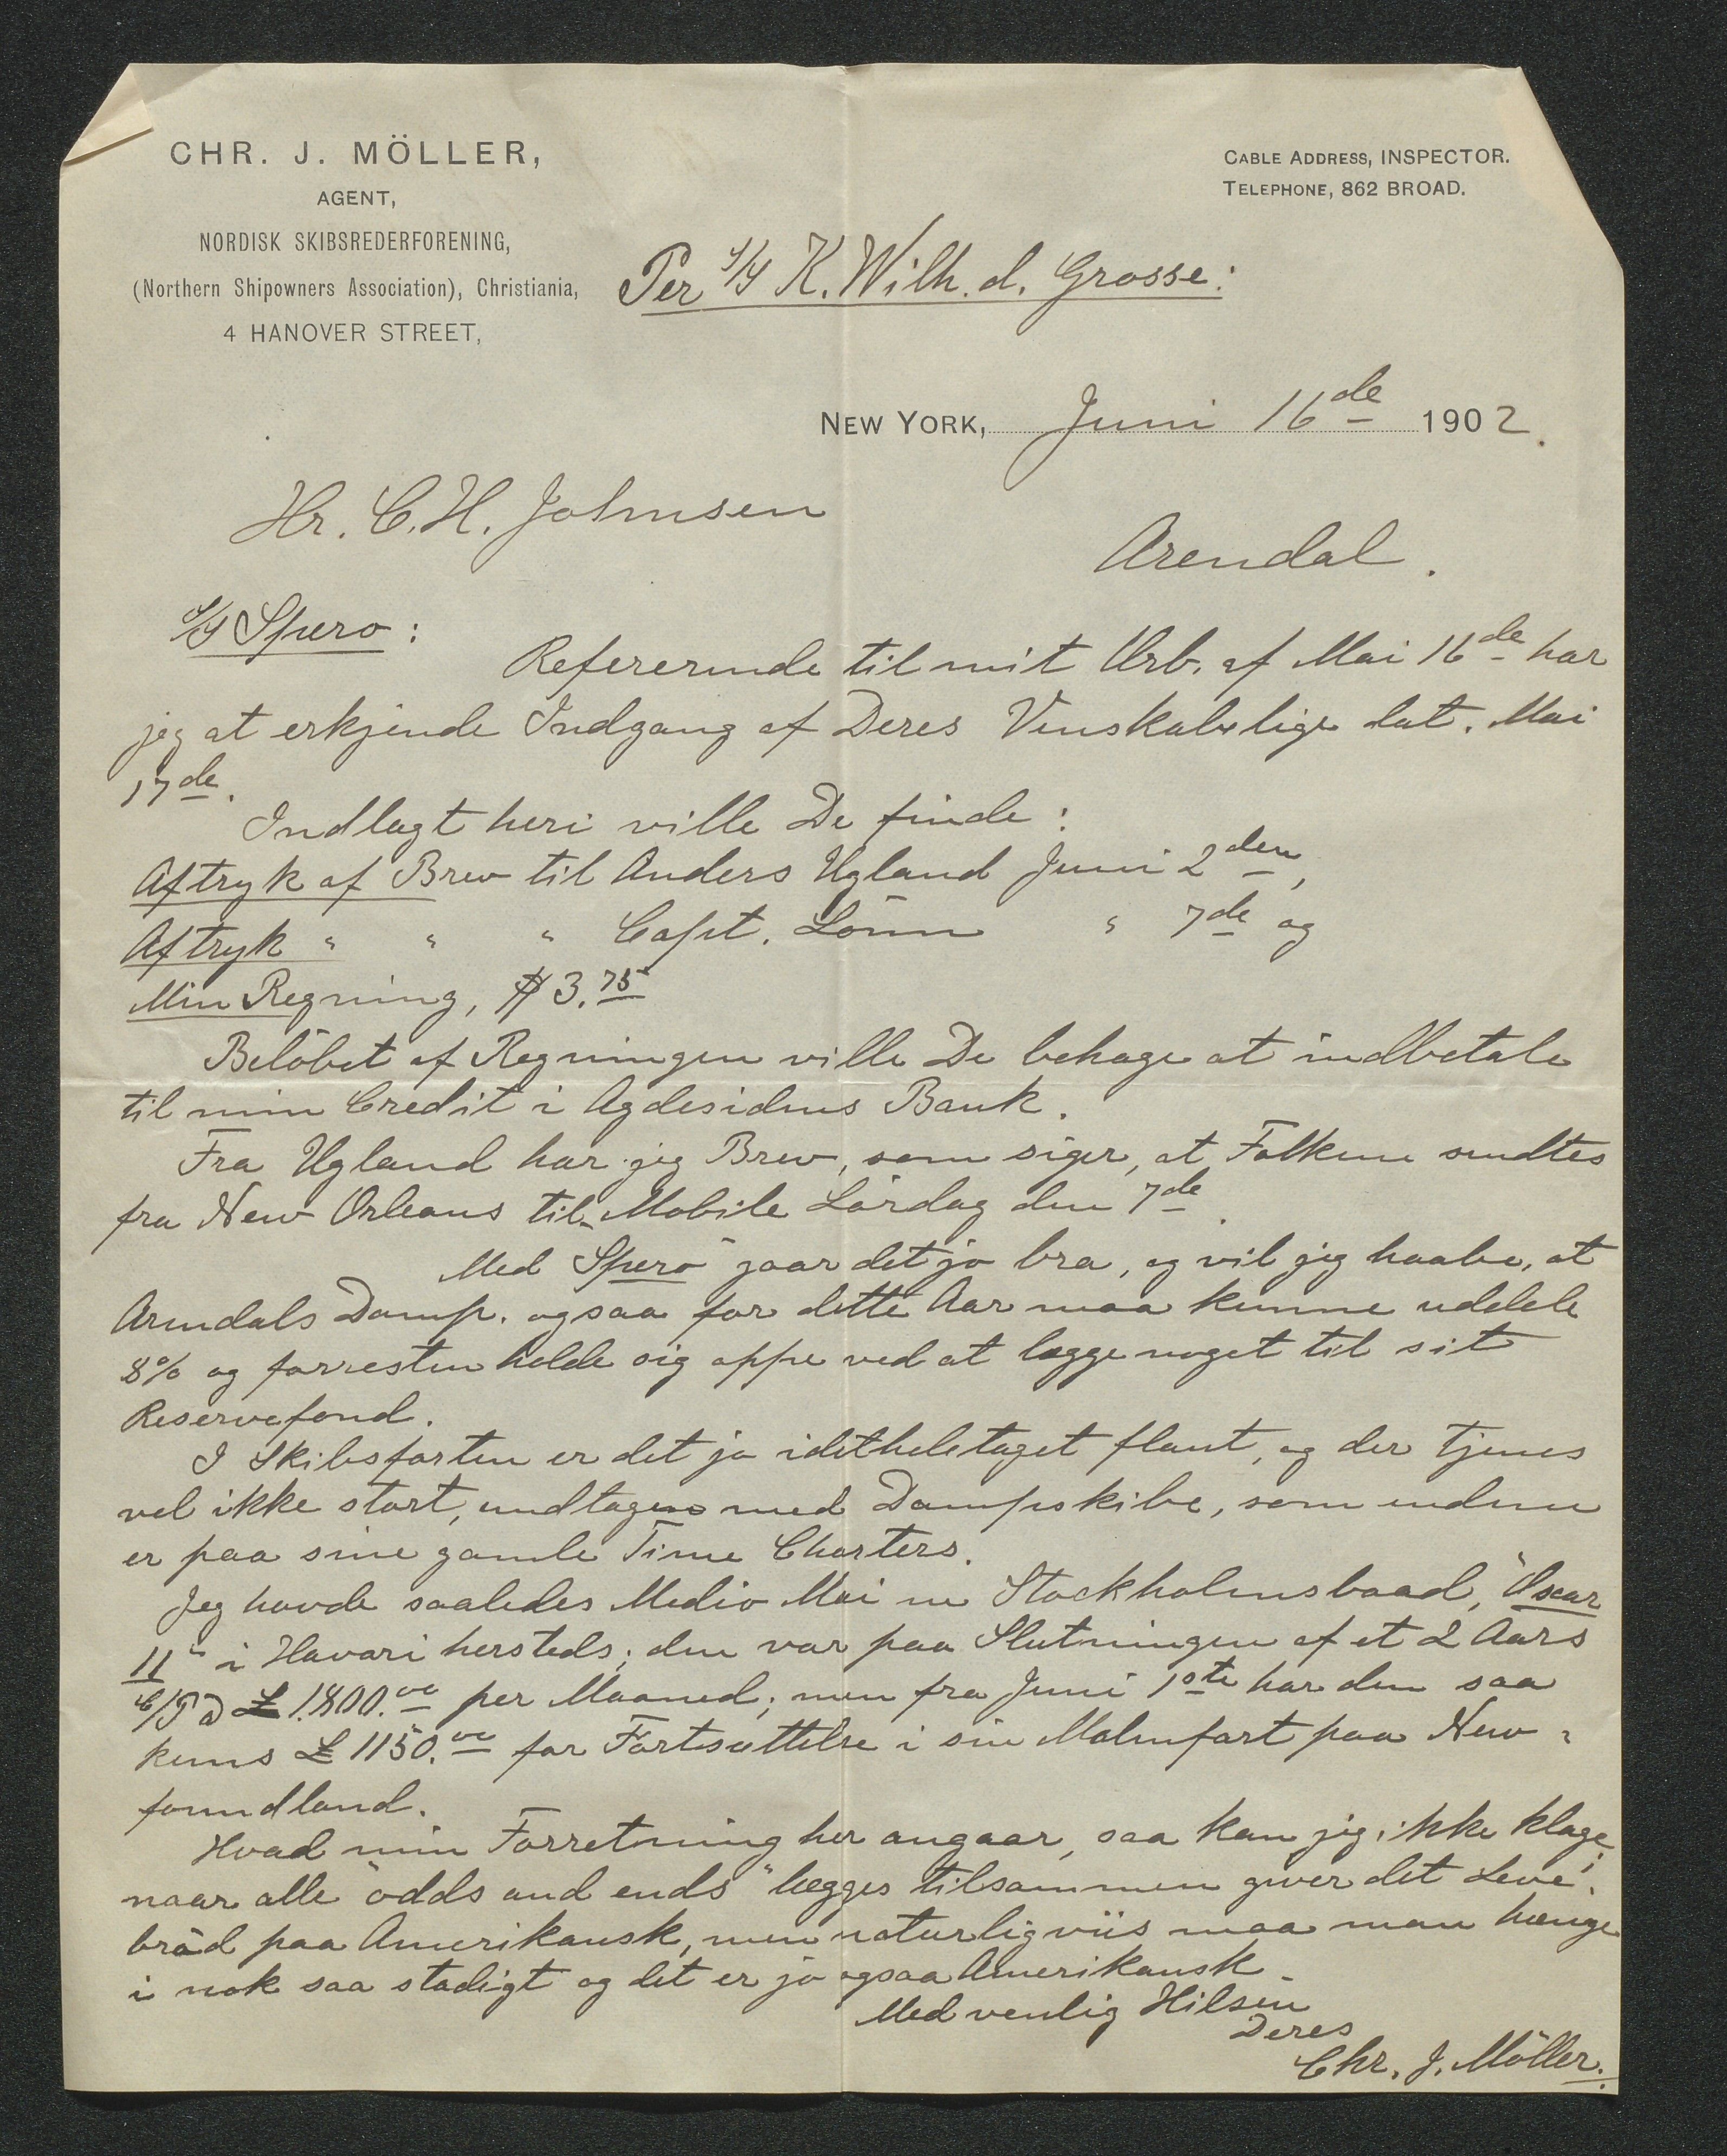 CHR. J. MÖLLER,
AGENT,
NORDISK SKIBSREDERFORENING,
(Northern Shipowners Association), Christiania,
4 HANOVER STREET,
CABLE ADDRESS, INSPECTOR.
TELEPHONE, 862 BROAD.
Per S/S K. Wilh. d. Grosse:
NEW YORK, Juni 16de 1902.
Hr. C. H. Johnsen
Arendal.
S/S Spero:
Refererende til mit Ærb. af Mai 16de har
jeg at erkjende Indgang af Deres Venskabelige dat. Mai
17de.
Indlagt heri ville De finde:
Aftryk af Brev til Anders Ugland Juni 2den,
Aftryk " " " Capt. Lönn " 7de og
Min Regning, $ 3.75
Belöbet af Regningen ville De behage at indbetale
til min Credit i Agdesidens Bank.
Fra Ugland har jeg Brev, som siger, at Folkene sendtes
fra New Orleans til Mobile Lördag den 7de.
Med Spero gaar det jo bra, og vil jeg haabe, at
Arendals Damp. ogsaa for dette Aar maa kunne uddele
8% og forresten holde sig oppe ved at lægge noget til sit
Reservefond.
I Skibsfarten er det jo idetheletaget flaut, og der tjenes
vel ikke stort, undtagen med Dampskibe, som endnu
er paa sine gamle Time Charters.
Jeg havde saaledes Medio Mai en Stockholmsbaad, "Oscar
II" i Havari hersteds; den var paa Slutningen af et 2 Aars
C/P a £ 1800.00 per Maaned; men fra Juni 1ste har den saa
kuns £ 1150.00 for Fortsættelse i sin Malmfart paa New-
foundland.
Hvad min Forretning her angaar, saa kan jeg ikke klage;
naar alle "odds and ends" lægges tilsammen giver det Leve-
bröd paa Amerikansk, men naturligviis maa man hænge
i nok saa stadigt og det er jo ogsaa Amerikansk.
Med venlig Hilsen
Deres
Chr. J. Möller.